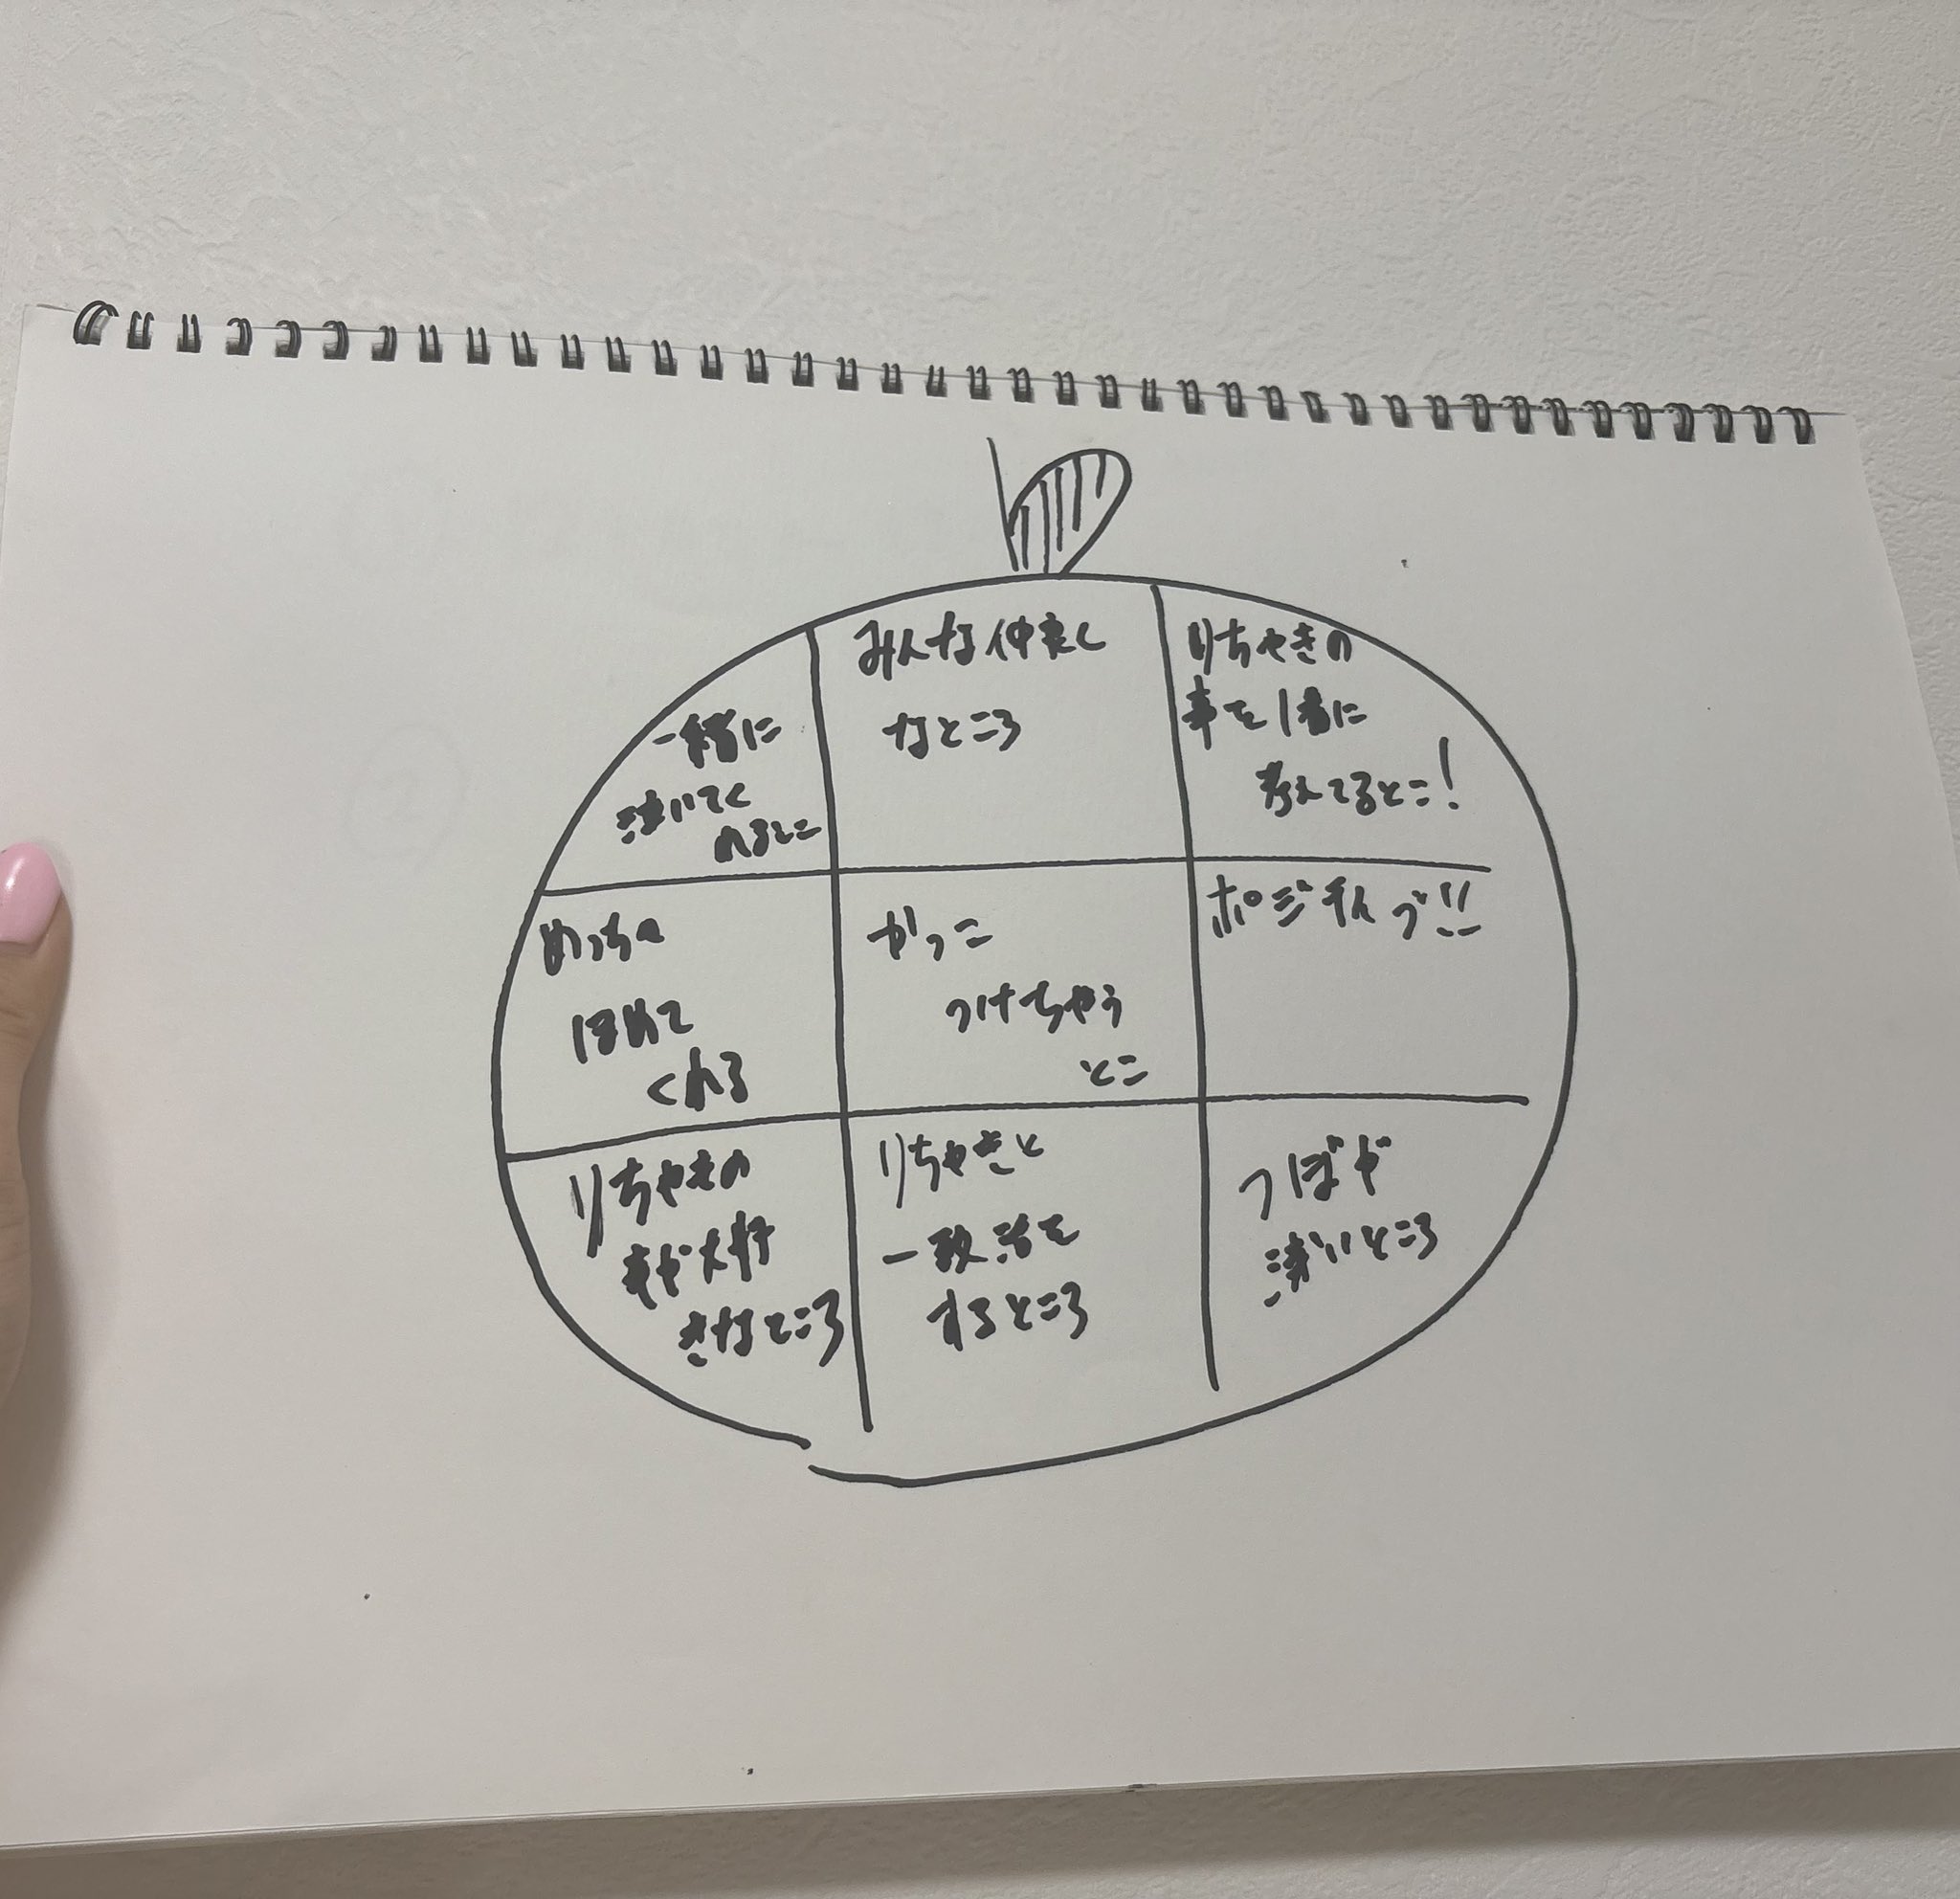 一緒に
泣いてく
れるとこ
みんな仲良く
なところ
りちゃきの
事を1番に
考えてるとこ!
めっちゃ
ほめて
くれる
かっこ
つけちゃう
とこ
ポジティブ!!
りちゃきの
事が大好
きなところ
りちゃきと
一致
するところ
つぼが
浅いところ